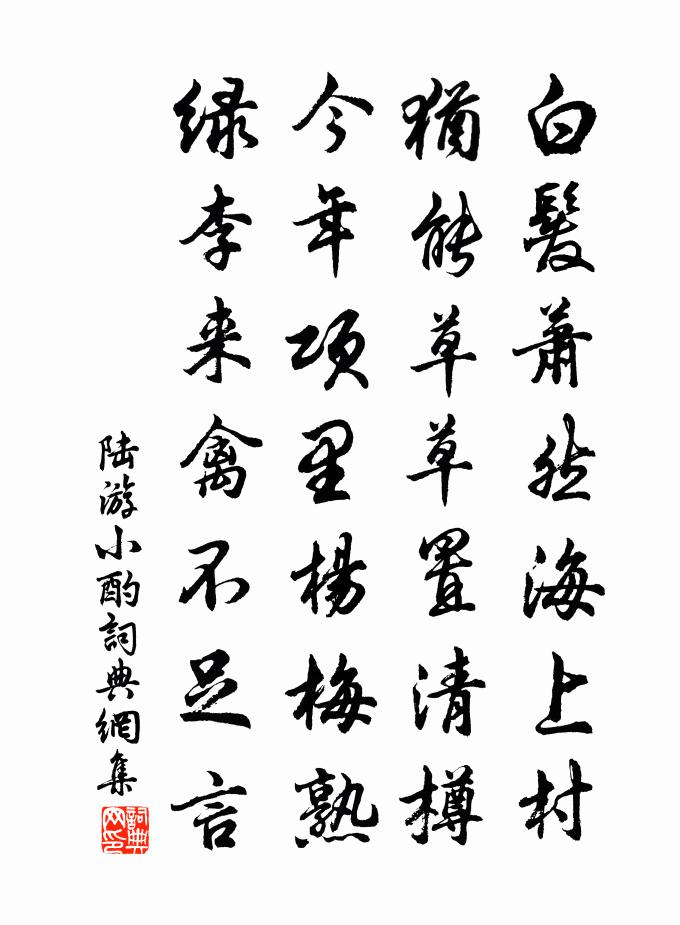 白髮蕭然海上村
猶能草草置清樽
今年項里楊梅熟
綠李来禽不足言
陆游小酌詞典網集
詞典網印